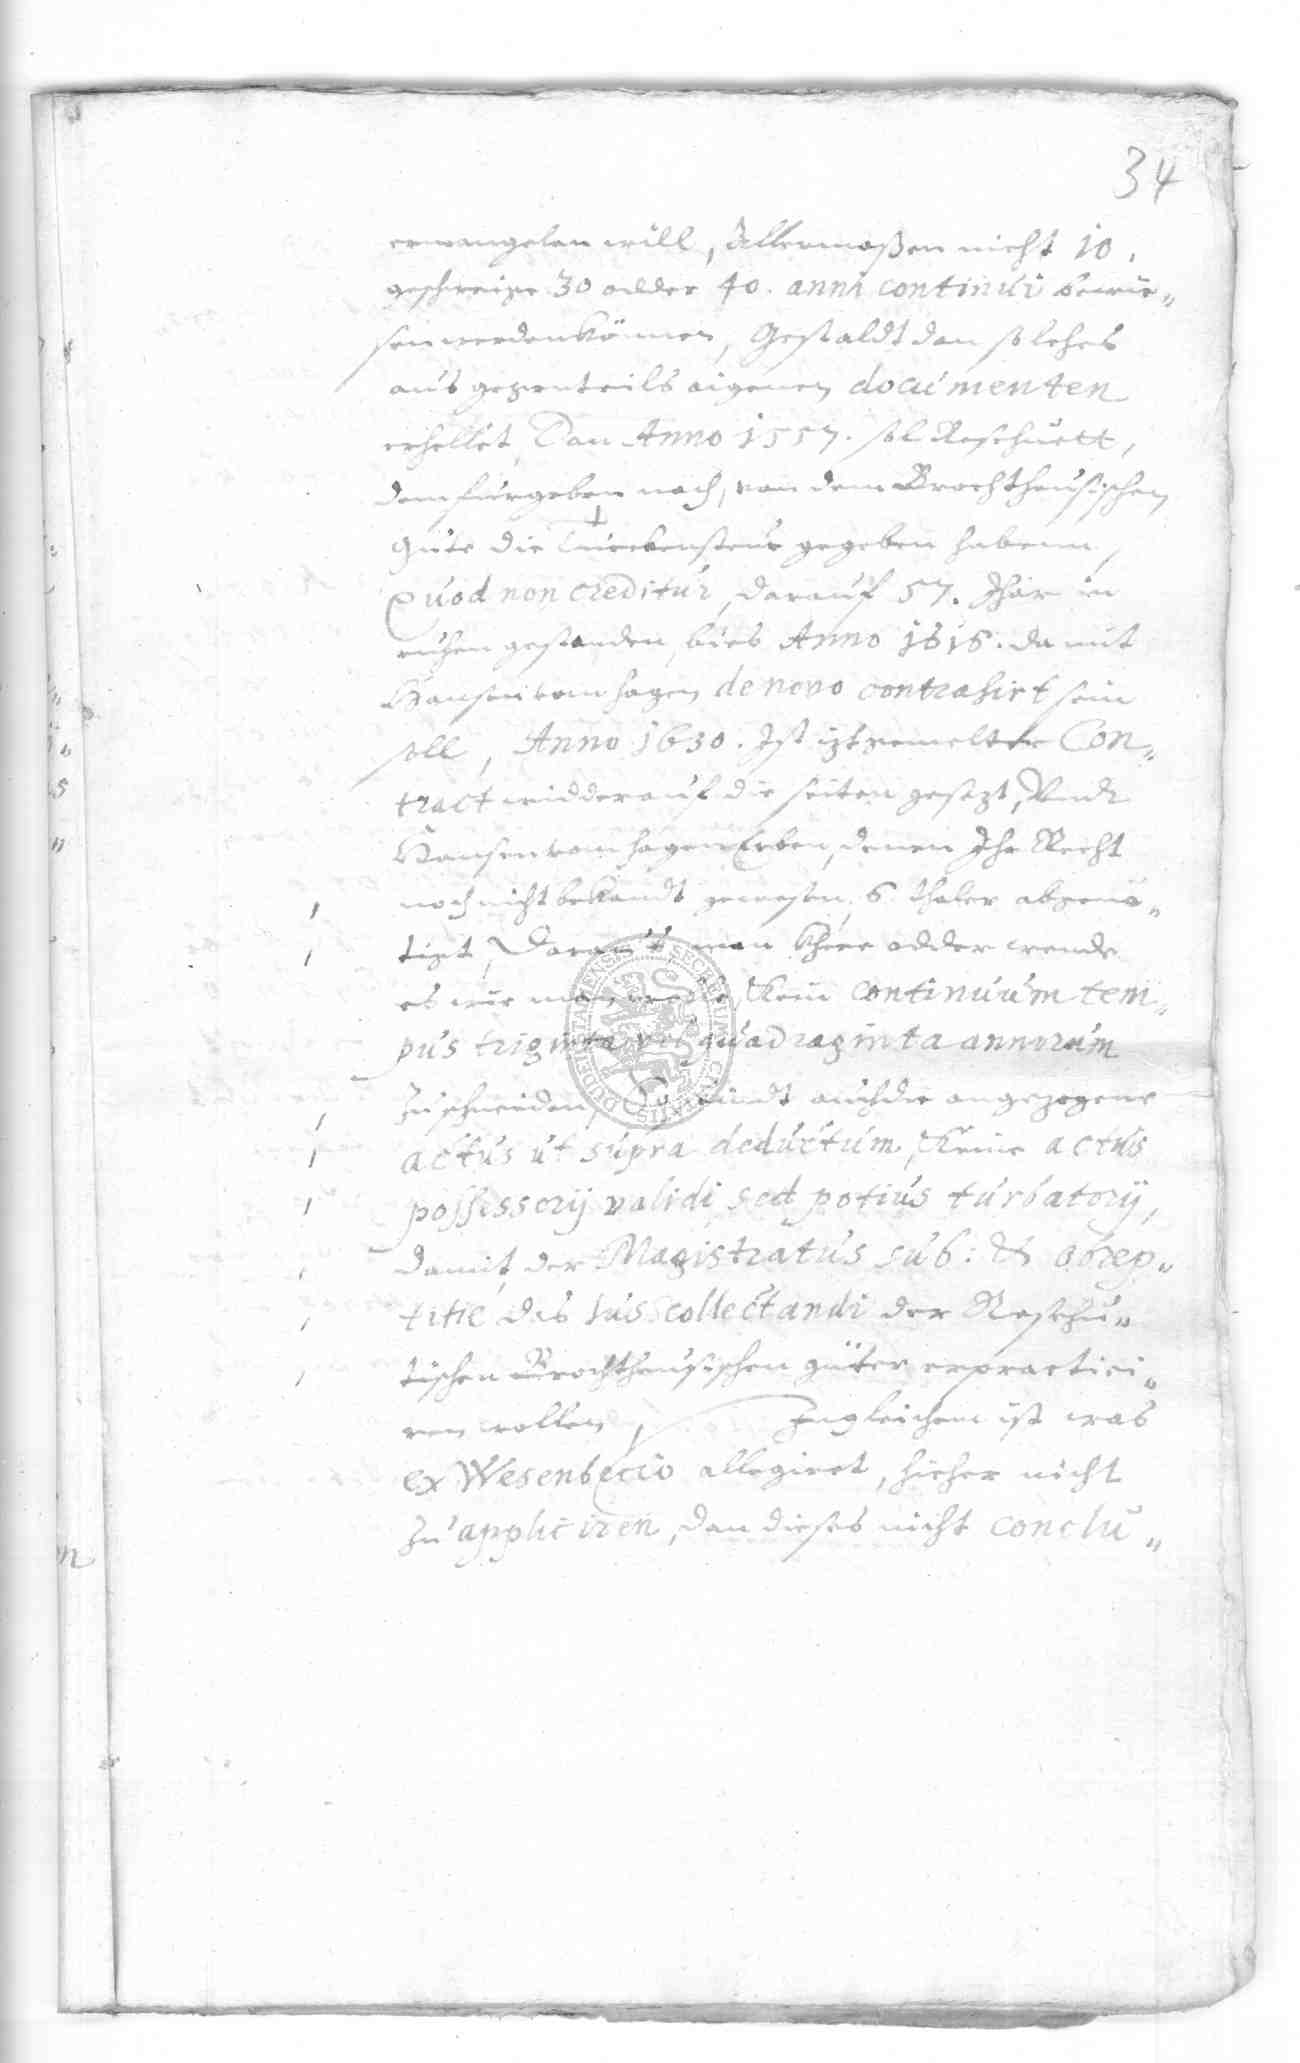 34
ermangelen will, Allermaßen nicht 10.
geschweige 30 odder 40. anni continui bewie„
sen werden können, Gestaldt dan solches
aus gegenteils aigenen documenten
erhellet, Dan Anno 1557. sol Reschuett,
dem furgeben nach, von dem Brochthusischen
Gute die Turckensteur gegeben habenn,
Quod non creditur, darauf 57. Jhar in
ruhen gestanden, bies Anno 1616. da mit
Hansen vom Hagen de novo contrahirt sein
soll, Anno 1630. Ist itzgemelter Con„
tract widder auf die seiten gesezt, Undt
Hansen vom Hagen Erben, denen Ihr Recht
noch nicht bekandt gewesen, 6 thaler abgenö„
tigt, Daraus, man khere odder wende
es wie man wolle, Kein continuum tem„
pus triginta vel quadraginta annorum
zuschneiden, So seindt auch die angezogene
actus ut supra deductum, Keine actus
possessorij validi sed potius turbatorij,
damit der Magistratus sub: & obrep„
titie des Ius collectandi der Reschu„
tischen Brochthusischen güter erpractici„
ren wollen, Ingleichem ist was
ex Wesenbecio allegiret, hieher nicht
zu appliciren, dan dieses nicht conclu„
SECRETUM CIVITATIS DUDERSTADIENSIS